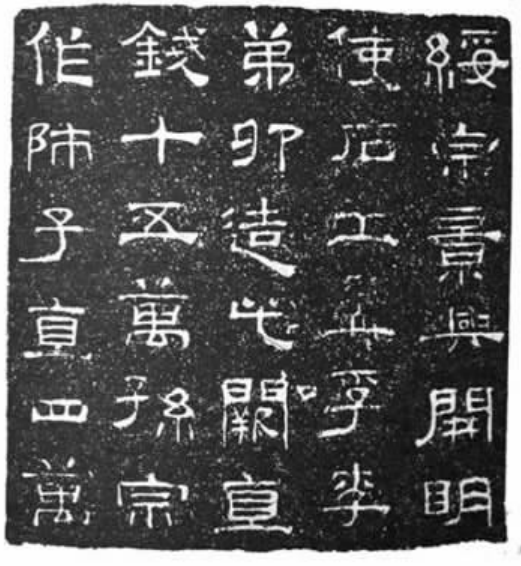 綏宗景興開明
使石工孟孚李
弟卯造此闕直
錢十五萬孫宗
作師子直四萬